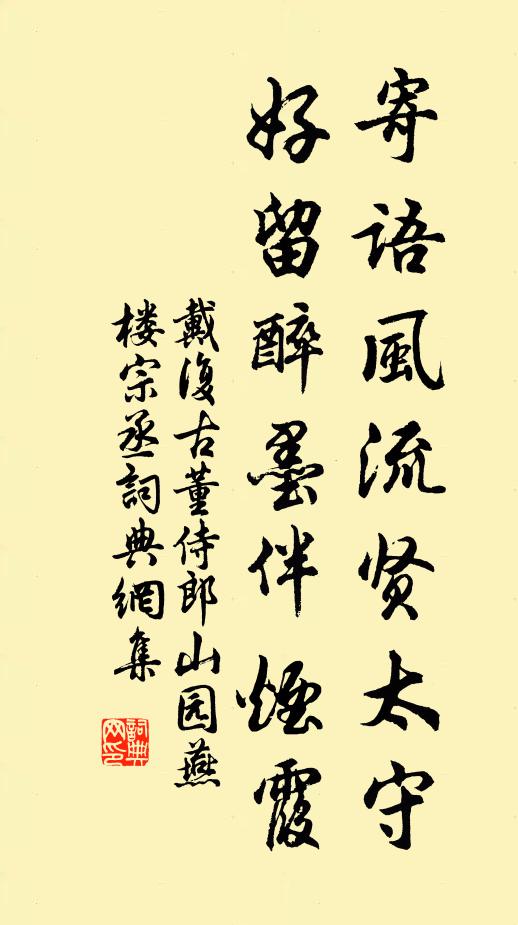 寄語風流贤太守
好留醉墨伴煙霞
戴復古董侍郎山园燕
楼宗丞詞典網集
詞典
网印